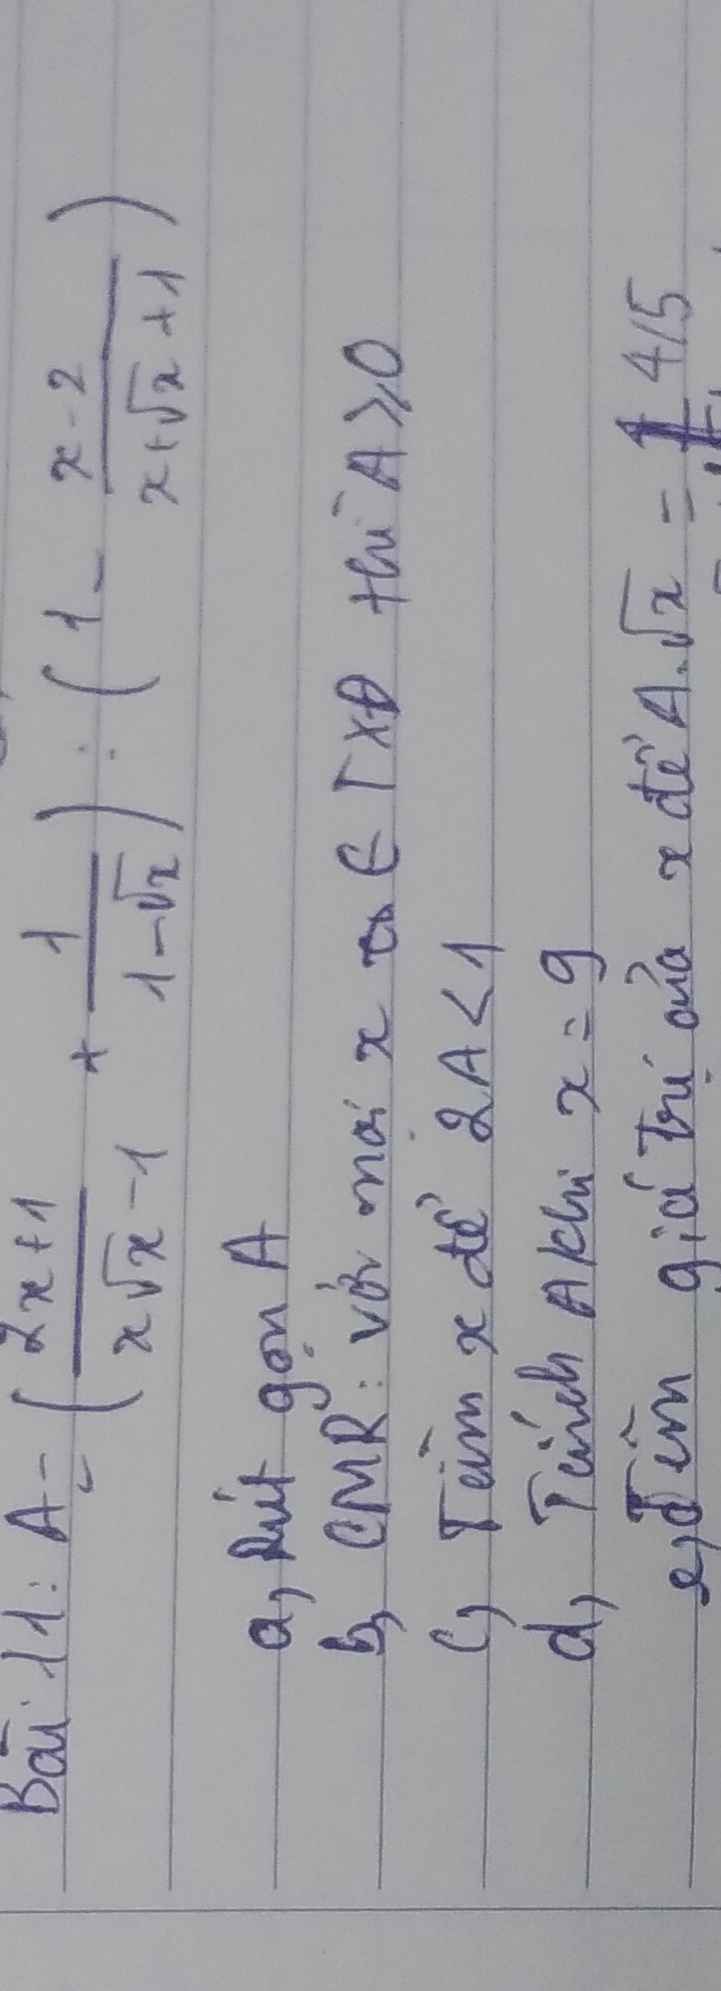 Bài 11: A = ( 2x+1 / x√x - 1 + 1 / 1-√x ) : ( 1 - x-2 / x+√x+1 )
a, Rút gọn A
b, CMR: với mọi x ∈ TXĐ thì A ≥ 0
c, Tìm x để 2A < 1
d, Tính A khi x = 9
e, Tìm giá trị của x để A.√x = 4/5